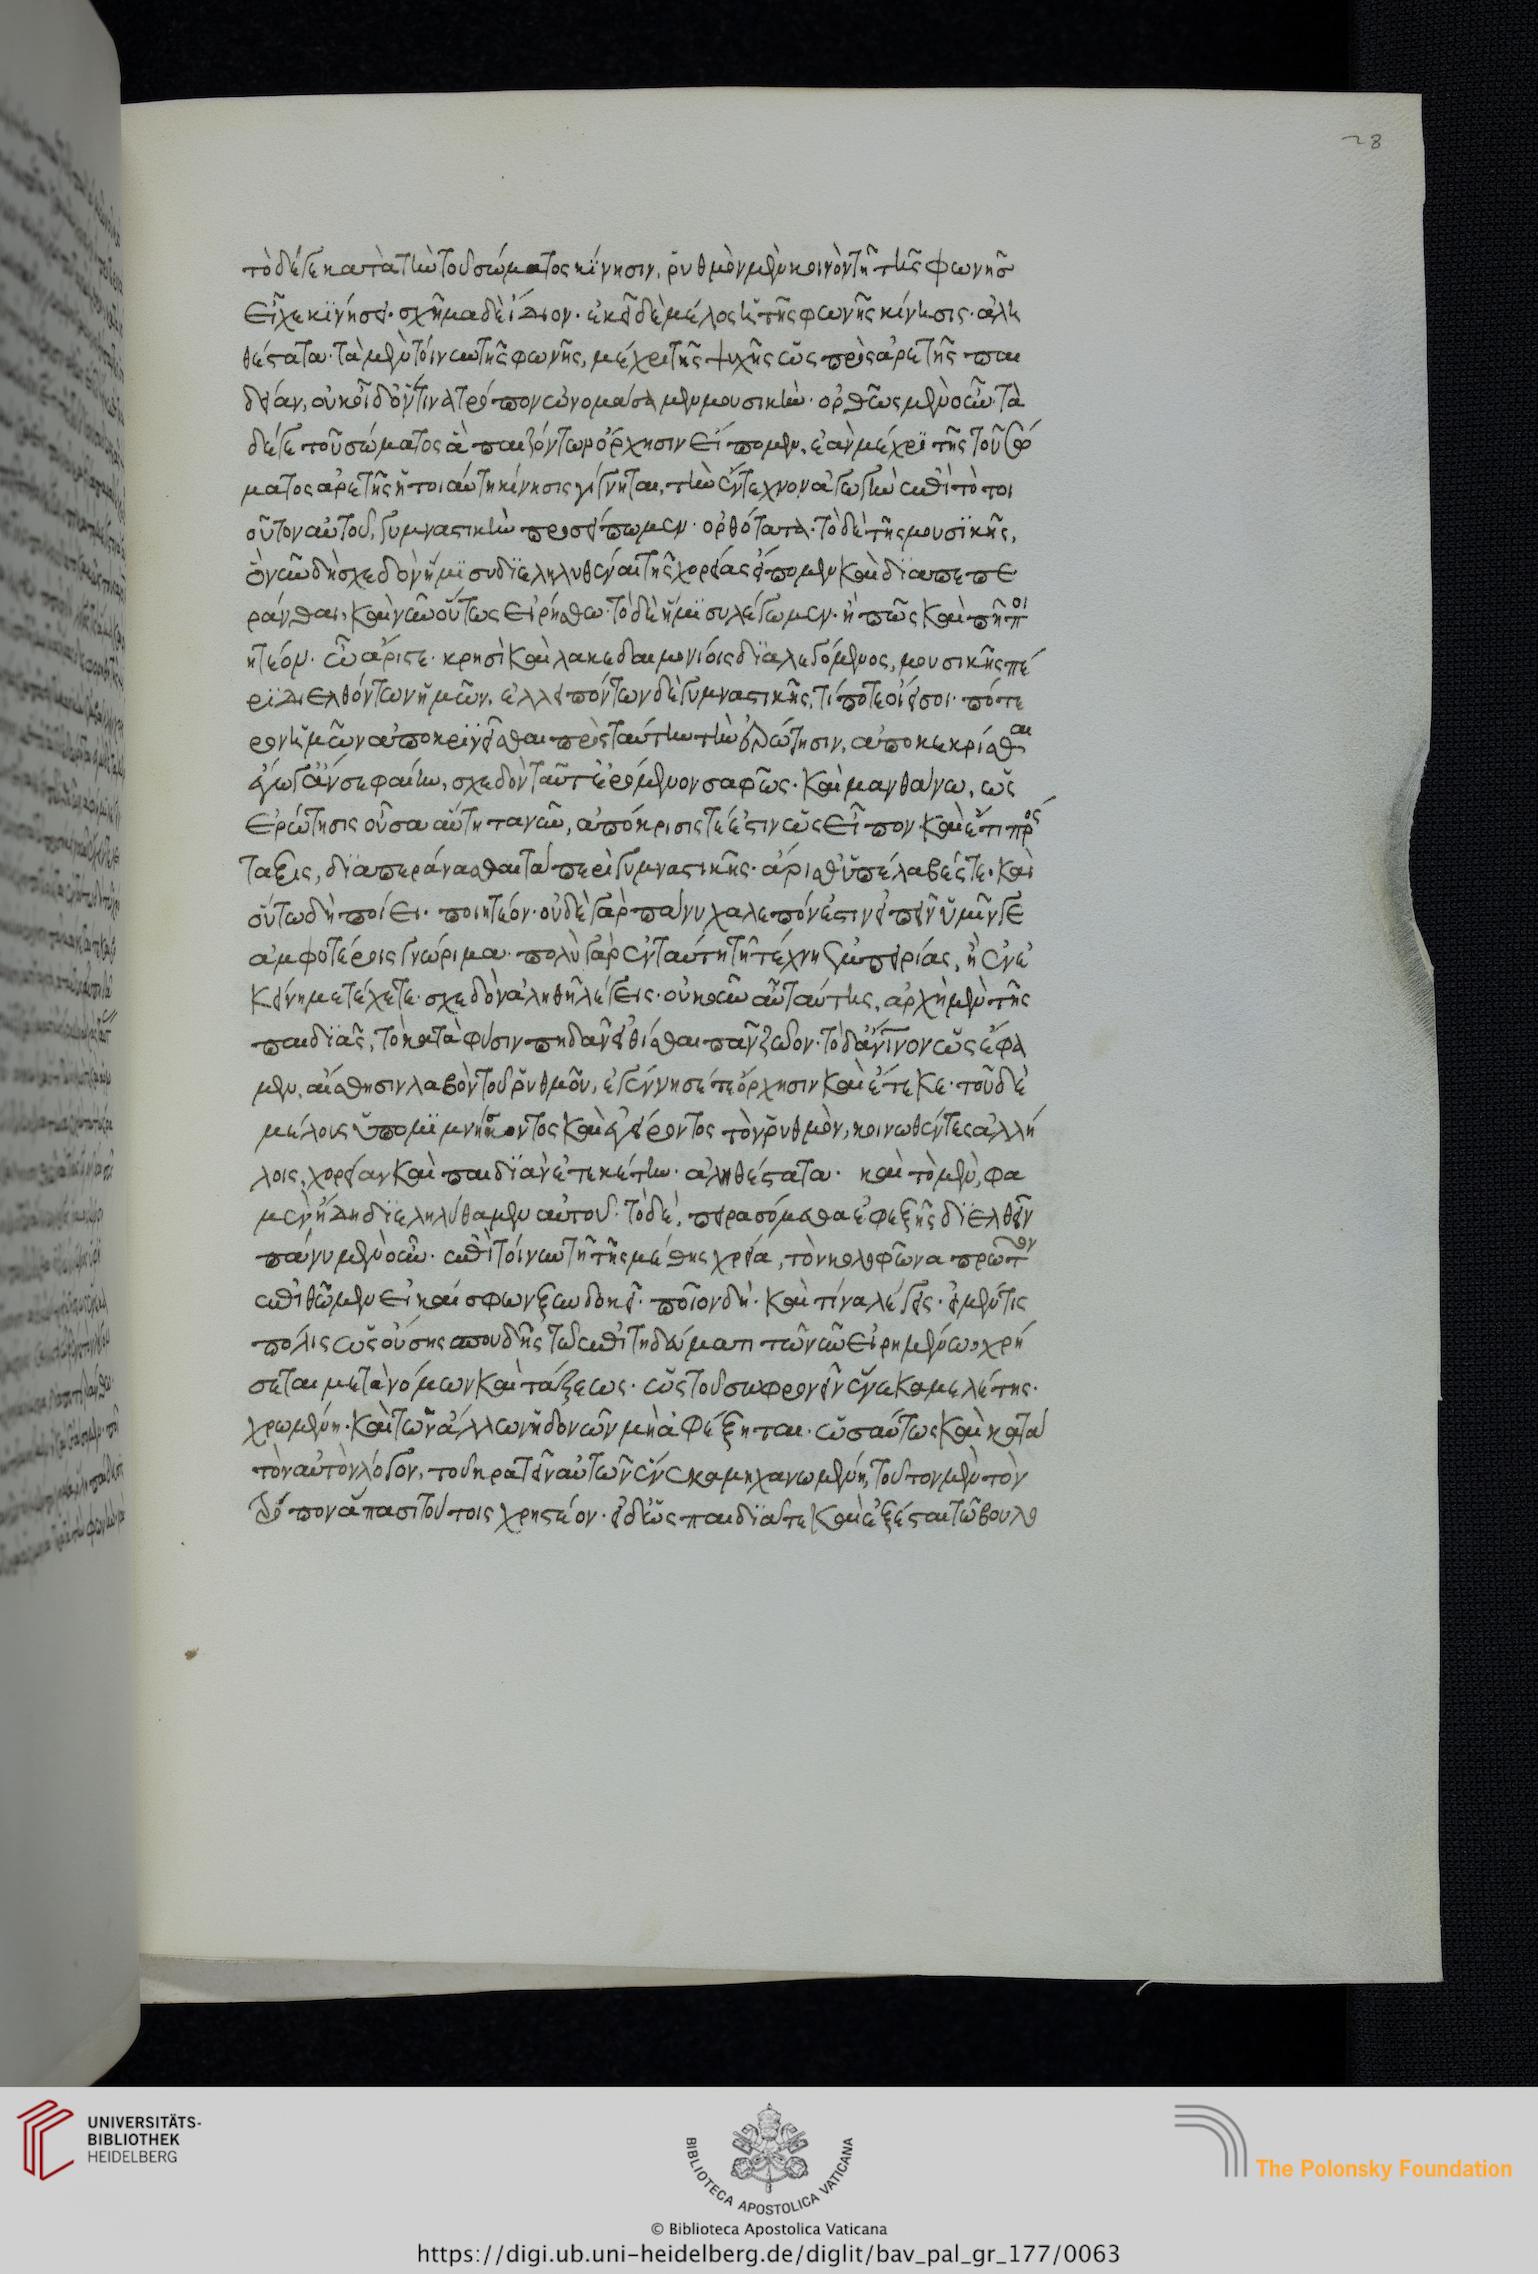 28
τὸ δέ γε κατὰ τὴν τοῦ σώματος κίνησιν, ῥυθμὸν μὲν κοινὸν τῇ τῆς φωνῆς
εἶχε κινήσει· σχῆμα δὲ ἴδιον· ἐκεῖ δὲ μέλος ἡ τῆς φωνῆς κίνησις· ἀλη
θέστατα· τὰ μὲν τοίνυν τῆς φωνῆς, μέχρι τῆς ψυχῆς ὡς πρὸς ἀρετῆς παι
δείαν, οὐκ οἶδ' ὅντινα τρόπον ὠνομάσαμεν μουσικήν· ὀρθῶς μὲν οὖν· τὰ
δέ γε τοῦ σώματος ἃ παιζόντων ὄρχησιν εἴπομεν, ἐὰν μέχρι τῆς τοῦ σώ
ματος ἀρετῆς ἡ τοιαύτη κίνησις γίγνηται, τὴν ἔντεχνον ἀγωγὴν ἐπὶ τὸ τοι
οῦτον αὐτοῦ, γυμναστικὴν προσείπωμεν· ὀρθότατα· τὸ δὲ τῆς μουσικῆς,
ὃ νῦν δὴ σχεδὸν ἥμισυ διεληλυθέναι τῆς χορείας εἴπομεν καὶ διαπεπε
ράνθαι, καὶ νῦν οὕτως εἰρήσθω· τὸ δὲ ἥμισυ λέγωμεν· ἢ πῶς καὶ πῇ ποι
ητέον· ὦ ἄριστε· κρησὶ καὶ λακεδαιμονίοις διαλεγόμενος, μουσικῆς πέ
ρι διελθόντων ἡμῶν, ἐλλειπόντων δὲ γυμναστικῆς, τί ποτε οἴει σοι πότε
ρον ἡμῶν ἀποκρινεῖσθαι πρὸς ταύτην τὴν ἐρώτησιν, ἀποκεκρίσθαι
ἔγωγ' ἄν σε φαίην, σχεδὸν ταῦτ' ἐρόμενον σαφῶς· καὶ μανθάνω, ὡς
ἐρώτησις οὖσα αὕτη τανῦν, ἀπόκρισίς τέ ἐστιν ὡς εἶπον καὶ ἔτι πρός
ταξις, διαπεράνασθαι τὰ περὶ γυμναστικῆς· ἄρισθ' ὑπέλαβές τε· καὶ
οὕτω δὴ ποίει· ποιητέον· οὐδὲ γὰρ πάνυ χαλεπόν ἐστιν εἰπεῖν ὑμῖν γε
ἀμφοτέροις γνώριμα· πολὺ γὰρ ἐν ταύτῃ τῇ τέχνῃ ἐμπειρίας, ἢ ἐν ἐ
κείνῃ μετέχετε· σχεδὸν ἀληθῆ λέγεις· οὐκοῦν αὖ ταύτης, ἀρχὴ μὲν τῆς
παιδιᾶς, τὸ κατὰ φύσιν πηδᾶν εἰθίσθαι πᾶν ζῷον· τὸ δ' ἄνινον ὡς ἔφα
μεν, αἴσθησιν λαβὸν τοῦ ῥυθμοῦ, ἐγέννησέ τε ὄρχησιν καὶ ἔτεκε· τοῦ δὲ
μέλους ὑπομιμνήσκοντος καὶ ἐγείροντος τὸν ῥυθμὸν, κοινωθέντες ἀλλή
λοις, χορείαν καὶ παιδιὰν ἐτεκέτην· ἀληθέστατα· καὶ τὸ μὲν, φα
μὲν ἤδη διεληλύθαμεν αὐτοῦ· τὸ δὲ, πειρασόμεθα ἐφεξῆς διελθεῖν
πάνυ μὲν οὖν· ἐπὶ τοίνυν τῇ τῆς μέθης χρείᾳ, τὸν κολοφῶνα πρῶτον
ἐπιθῶμεν εἰ καὶ σφῷν ξυνδοκεῖ· ποῖον δὴ· καὶ τίνα λέγεις· εἰ μέν τις
πόλις ὡς οὔσης σπουδῆς τῷ ἐπιτηδεύματι τῷ νῦν εἰρημένῳ χρή
σεται μετὰ νόμων καὶ τάξεως· ὡς τοῦ σωφρονεῖν ἕνεκα μελέτης·
χρωμένη· καὶ τῶν ἄλλων ἡδονῶν μὴ ἀφέξηται· ὡσαύτως καὶ κατὰ
τὸν αὐτὸν λόγον, τοῦ κρατεῖν αὐτῶν ἕνεκα μηχανωμένη, τοῦτον μὲν τὸν
τρόπον ἅπασι τούτοις χρηστέον· εἰ δ' ὡς παιδιᾷ τε καὶ ἐξέσται τῷ βουλο
UNIVERSITÄTS-
BIBLIOTHEK
HEIDELBERG
BIBLIOTECA APOSTOLICA VATICANA
The Polonsky Foundation
© Biblioteca Apostolica Vaticana
https://digi.ub.uni-heidelberg.de/diglit/bav_pal_gr_177/0063